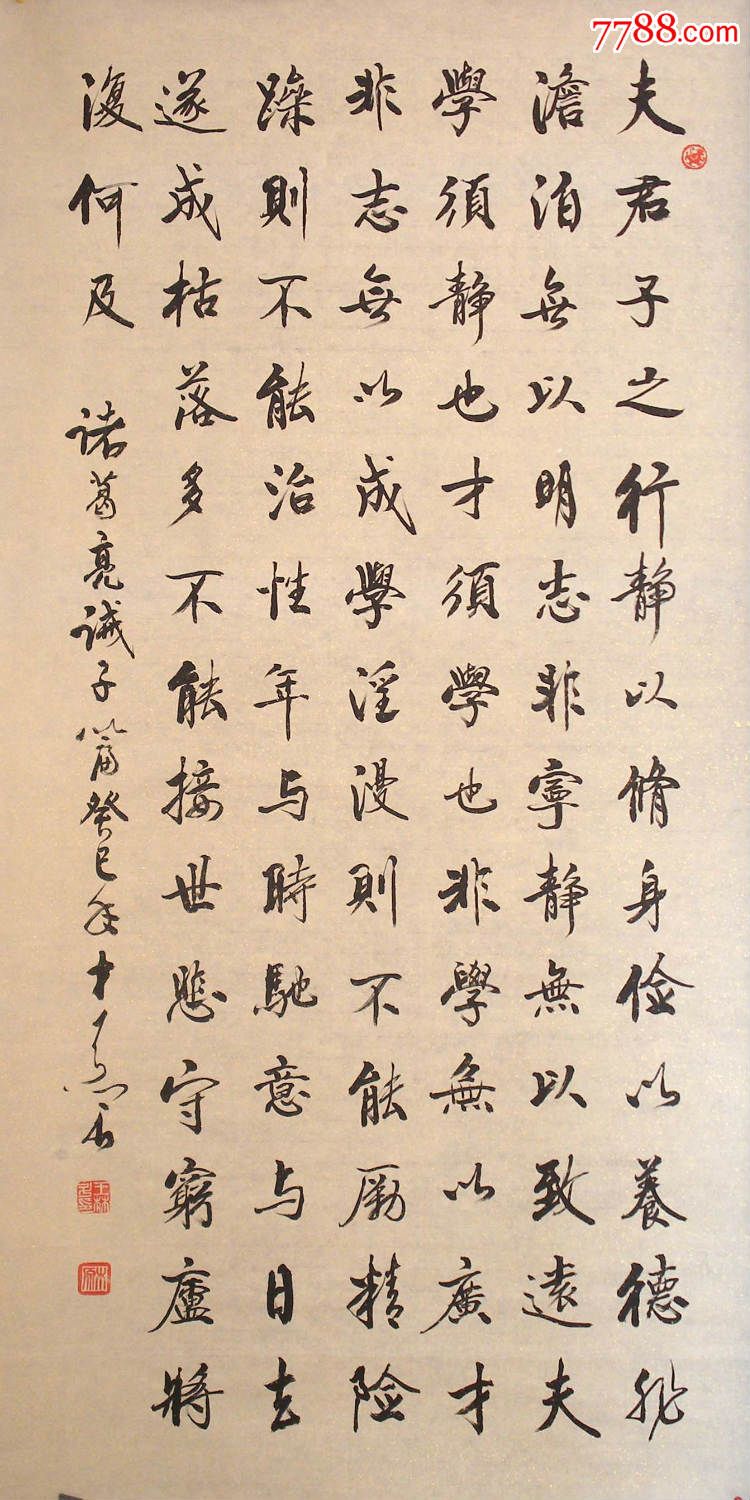 7788.com
夫君子之行静以脩身俭以養德非
澹泊無以明志非寧静無以致遠夫
學須静也才須學也非學無以廣才
非志無以成學淫漫則不能励精险
躁則不能治性年与時馳意与日去
遂成枯落多不能接世悲守窮廬將
復何及
诸葛亮诫子篇癸巳年